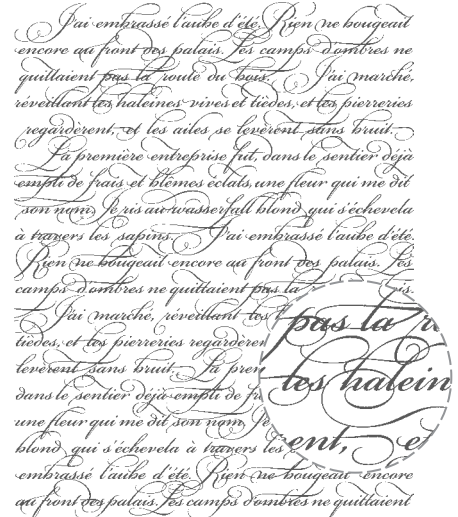 J'ai embrassé l'aube d'été. Rien ne bougeait
encore au front des palais. Les camps d'ombres ne
quittaient pas la route du bois. J'ai marché,
réveillant les haleines vives et tièdes, et les pierreries
regardèrent, et les ailes se levèrent sans bruit.
La première entreprise fut, dans le sentier déjà
empli de frais et blêmes éclats, une fleur qui me dit
son nom. Je ris au wasserfall blond qui s'échevela
à travers les sapins. J'ai embrassé l'aube d'été.
Rien ne bougeait encore au front des palais. Les
camps d'ombres ne quittaient pas la
J'ai marché, réveillant les
tièdes, et les pierreries regardèren
levèrent sans bruit. La prem
dans le sentier déjà empli de fr
une fleur qui me dit son nom. Je
blond qui s'échevela à travers les
embrassé l'aube d'été. Rien ne bougeait encore
au front des palais. Les camps d'ombres ne quittaient
pas la r
les halein
ent, et